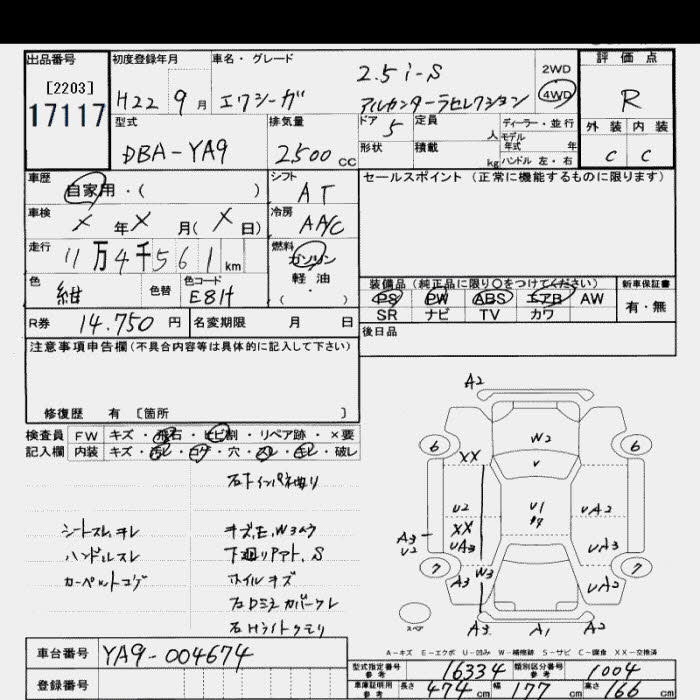 出品番号
[2203]
17117
初度登録年月
H22 9月
車名・グレード
エクシーガ
2.5 i-S
アルカンターラセレクション
2WD
4WD
評価点
R
外装 内装
C C
型式
DBA-YA9
排気量
2500 CC
ドア 5
定員 人
形状
積載 kg
ディーラー・並行
モデル年式 年
ハンドル 左・右
車歴
自家用・( )
シフト
AT
セールスポイント (正常に機能するものに限ります)
車検
X 年 X 月( X 日)
冷房
AAC
走行
11万4千561 km
燃料
ガソリン
軽・油
( ・ )
色
紺
色替
色コード
E8H
装備品 (純正品に限り○をつけてください)
PS PW ABS エアB AW
SR ナビ TV カワ
新車保証書
有・無
R券 14.750 円
名変期限 月 日
後日品
注意事項申告欄 (不具合内容等は具体的に記入して下さい)
修復歴 有 [箇所 ]
検査員
記入欄
FW キズ・飛石・ヒビ割・リペア跡・×要
内装 キズ・汚レ・コゲ・穴・スレ・キレ・破レ
シートスレ、ヨレ
ハンドルスレ
カーペットコゲ
キズ、E、W3ムラ
下廻リアト、S
ホイルキズ
右Dミラーカバーワレ
右Hライトクモリ
A2
6
6
W2
XX
V
U2
U1
UA2
XX
UA3
A3
U2
UA3
7
7
A3
W3
UA2
スペア
A3
A1
A2
A-キズ E-エクボ U-凹み W-補修跡 S-サビ C-腐食 XX-交換済
車台番号 YA9-004674
登録番号
型式指定番号 参考 16334
類別区分番号 参考 1004
車庫証明用 参考 長さ 474 cm 幅 177 cm 高さ 166 cm